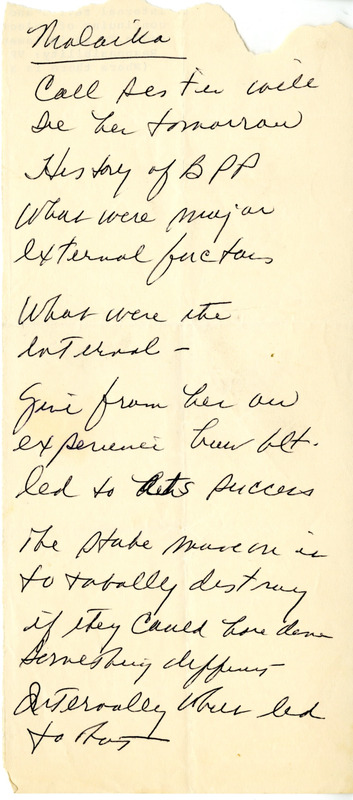 Malaika
Call sister will
see her tomorrow
History of BPP
What were major
external factors
What were the
internal –
Give from her own
experience
led to its success
The state move on is
to totally destroy
if they could have done
something different
Internally what led
to